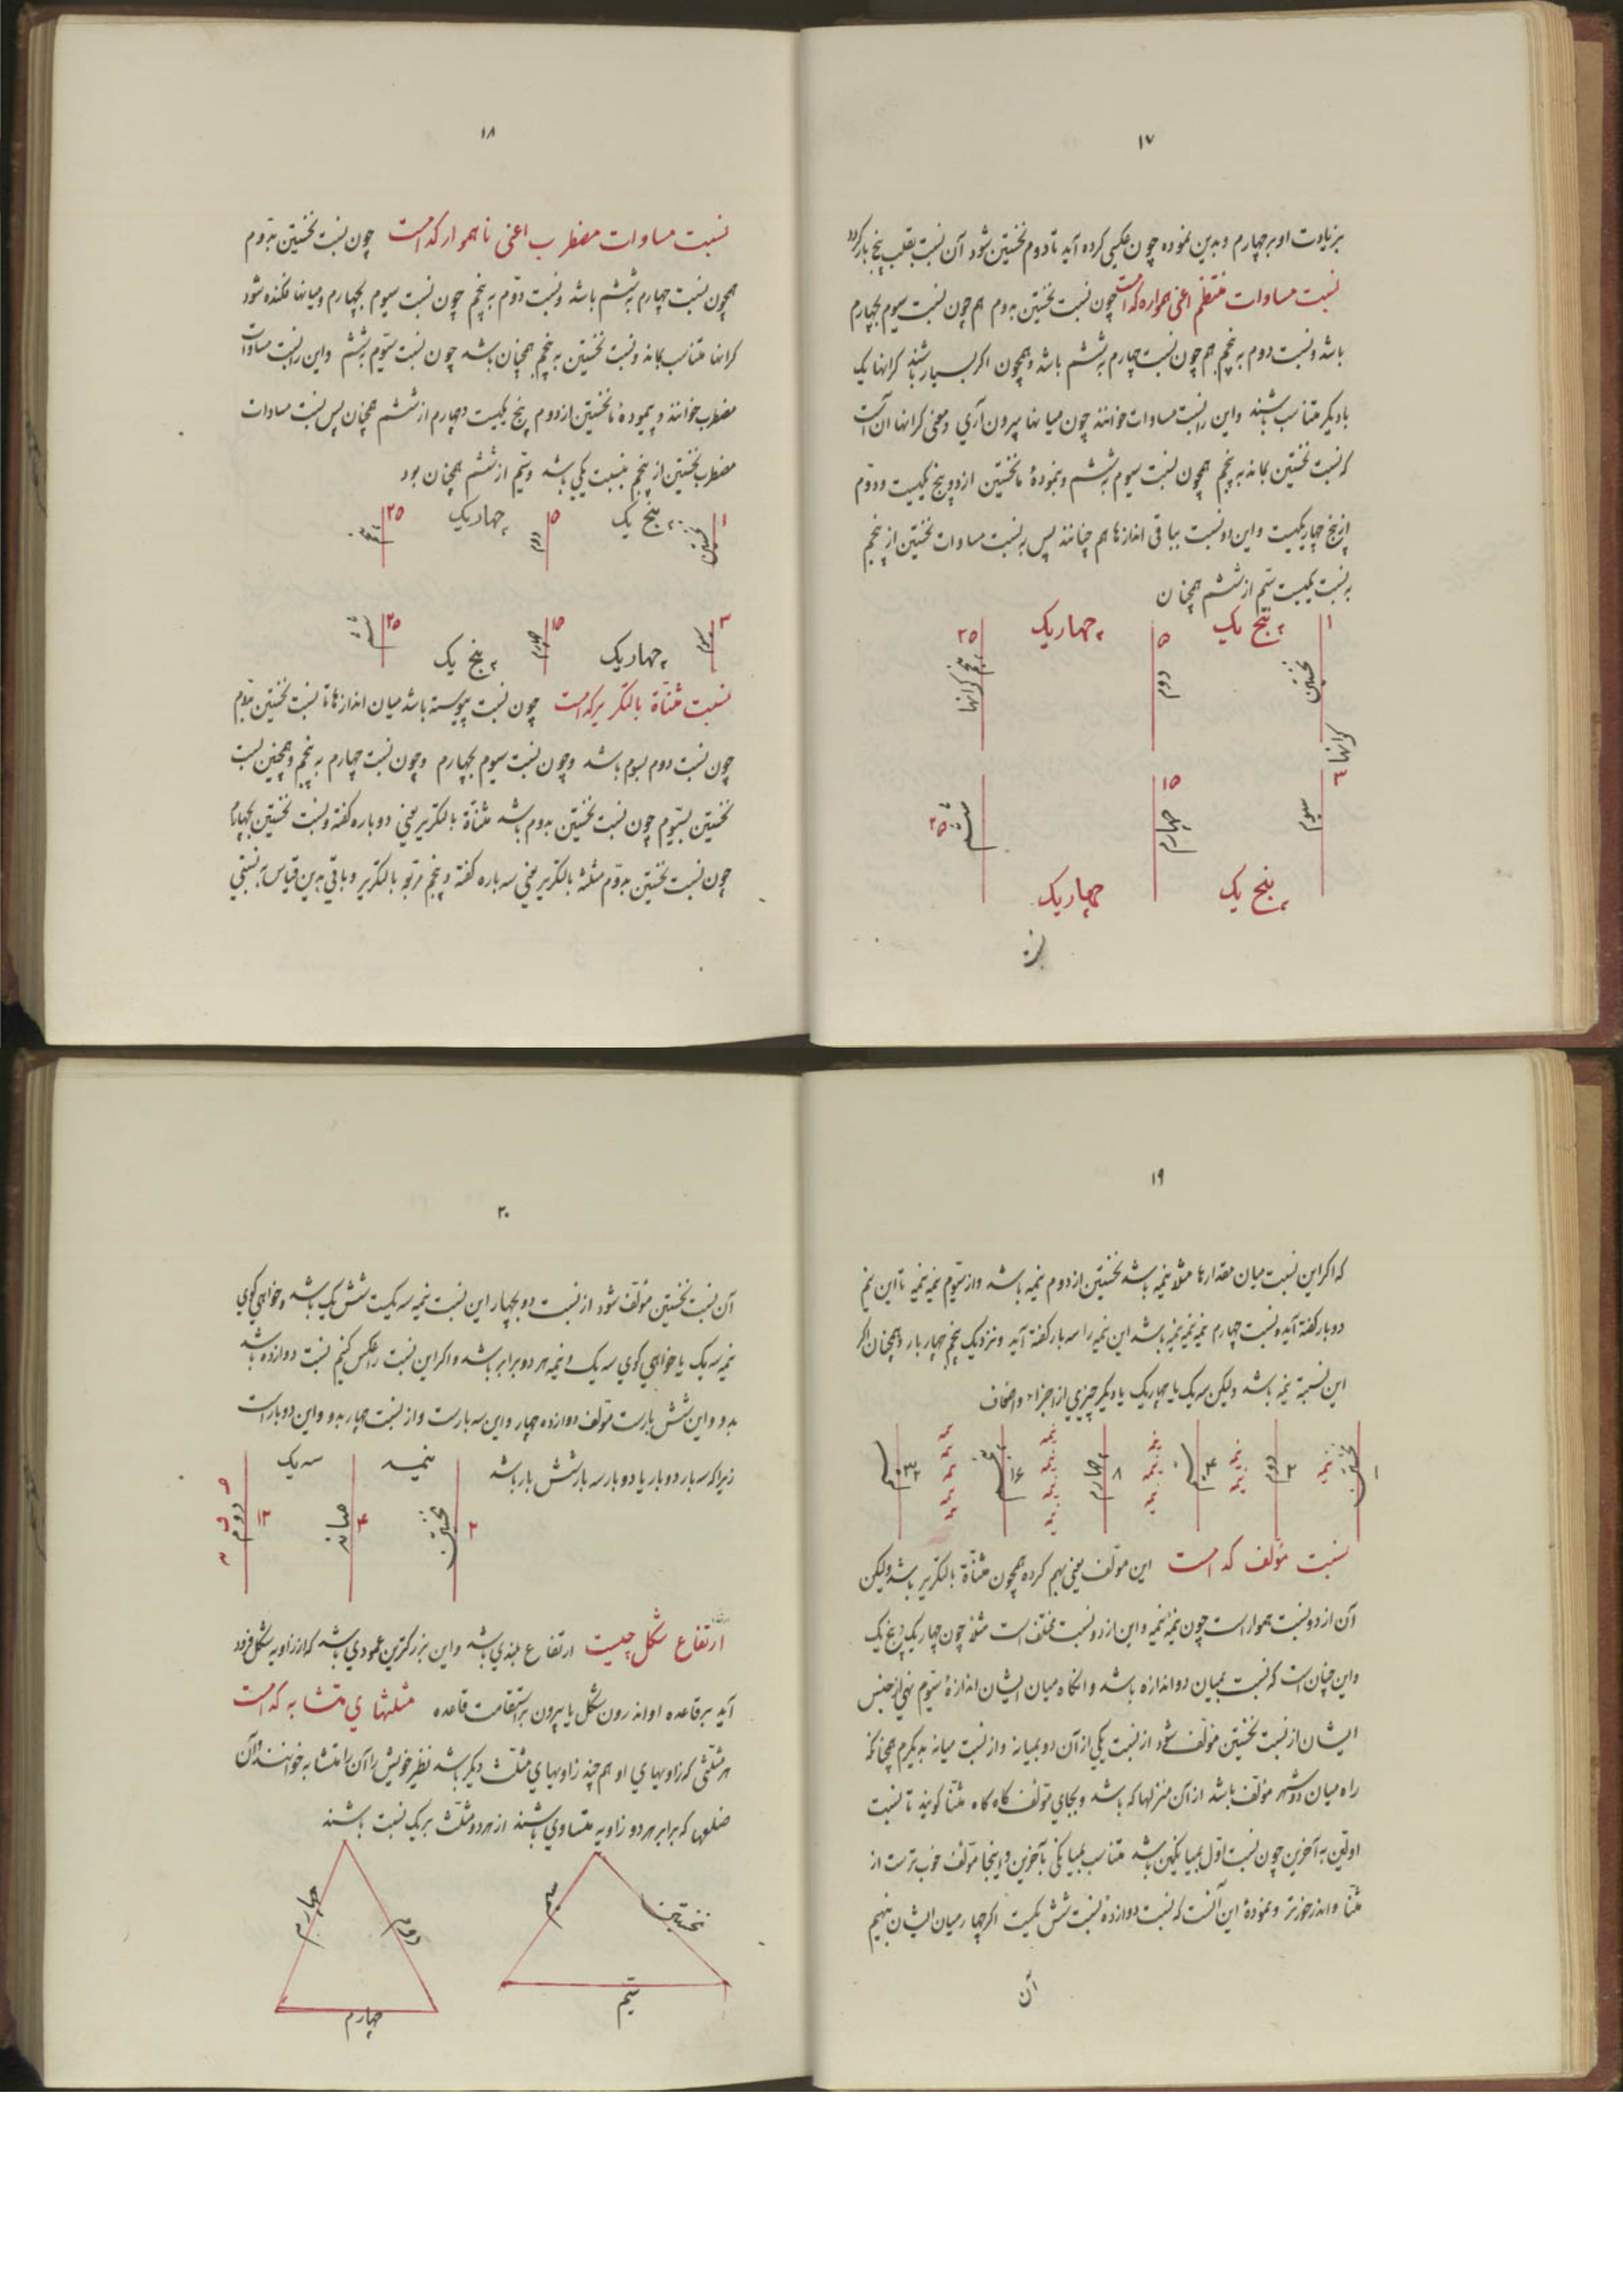 ۱۷
بزیادت او بر چهارم و بدین نموده چون عکسی کرده آید تا دوم نخستین شود آن نسبت بقلب پنج بار کردد
نسبت مساوات منتظم اعنی همواره کدامست چون نسبت نخستین بدوم هم چون نسبت سیوم بچهارم
باشد و نسبت دوم به پنجم هم چون نسبت چهارم بششم باشد و همچون اکر بسیار باشند کرانها یک
بادیکر متناسب باشند و این را نسبت مساوات خوانند چون میانها بیرون آری و معنی کرانها آن است
که نسبت نخستین بماند به پنجم همچون نسبت سیوم بششم و بنمودهٔ ما نخستین از دوم پنج یکیست و دوم
از پنج چهار یکیست و این دو نسبت بباقی اندازها هم چنانند پس به نسبت مساوات نخستین از پنجم
به نسبت یکیست سیم از ششم همچنان
۱ نخستین به پنج یک ۵ دوم به چهار یک ۲۵ پنجم کرانها
کرانها
۳ سیوم به پنج یک ۱۵ چهارم چهار یک ۲۵ ششم
۱۸
نسبت مساوات مضطرب اعنی ناهموار کدامست چون نسبت نخستین بدوم
همچون نسبت چهارم بششم باشد و نسبت دوم به پنجم چون نسبت سیوم بچهارم و میانها فکنده شود
کرانها متناسب بماند و نسبت نخستین به پنجم همچنان باشد چون نسبت سیوم بششم و این را نسبت مساوات
مضطرب خوانند و پیمودهٔ ما نخستین از دوم پنج یکیست و چهارم از ششم همچنان پس نسبت مساوات
مضطرب نخستین از پنجم بنسبت یکی باشد و سیم از ششم همچنان بود
۱ نخستین به پنج یک ۵ دوم به چهار یک ۲۵ پنجم
۳ سیوم به چهار یک ۱۵ چهارم به پنج یک ۲۵ ششم
نسبت مثناة بالتکریر کدامست چون نسبت پیوسته باشد میان اندازها تا نسبت نخستین بدوم
چون نسبت دوم بسوم باشد و چون نسبت سیوم بچهارم و چون نسبت چهارم به پنجم و همچنین نسبت
نخستین بسیوم چون نسبت نخستین بدوم باشد مثناة بالتکریر یعنی دوباره کفته و نسبت نخستین بچهارم
چون نسبت نخستین بدوم مثلثه بالتکریر یعنی سه باره کفته و پنجم مربعه بالتکریر و باقی بدین قیاس به نسبتی
۱۹
که اکر این نسبت میان مقدارها مثلا نیمه باشد نخستین از دوم نیمه باشد و از سیوم نیمه نیمه تا این نیم
دو بار کفته آید و نسبت چهارم نیمه نیمه نیمه باشد این نیمه را سه بار کفته آید و نزدیک پنجم چهار بار و همچنان اکر
این نسبت نیمه باشد ولیکن سه یک یا چهار یک یا دیکر چیزی از اجزاء و اضعاف
۱ نخستین نیمه ۲ دوم نیمه نیمه ۴ سیم نیمه نیمه نیمه ۸ چهارم نیمه نیمه نیمه نیمه ۱۶ پنجم نیمه نیمه نیمه نیمه نیمه ۳۲ ششم
نسبت مؤلف کدامست این مؤلف یعنی بهم کرده همچون مثناة بالتکریر باشد ولیکن
آن از دو نسبت هموار است چون نیمه نیمه و این از دو نسبت مختلف است مثلا چون چهار یک پنج یک
و این چنان است که نسبت بمیان دو اندازه باشد و آنکاه میان ایشان اندازهٔ سیوم نهی از جنس
ایشان از نسبت نخستین مؤلف شود از نسبت یکی از آن دو بمیانه و از نسبت میانه بدیکرم همچنانکه
راه میان دو شهر مؤلف باشد از آن منزلها که باشد و بجای مؤلف کاه کاه مثنا کویند تا نسبت
اولین به آخرین چون نسبت اول بمیانکین باشد متناسب بمیانکی بآخرین و اینجا مؤلف خوب ترست از
مثنا و اندر خورتر و نمودهٔ این آنست که نسبت دو از ده نسبت شش یکیست اکر چهار میان ایشان بنهیم
آن
۲۰
آن نسبت نخستین مؤلف شود از نسبت دو بچهار این نسبت نیمه سه یکیست شش یک باشد و خواهی کوی
نیمه سه یک یا خواهی کوی سه یک و نیمه هر دو برابر باشد و اکر این نسبت را عکس کنیم نسبت دوازده باشد
بدو و این شش بارست مؤلف دوازده چهار و این سه بارست و از نسبت چهار بدو و این دو بارست
زیرا که سه بار دو بار یا دو بار سه بار شش بار باشد
۲ نخستین نیمه ۴ میانه سه یک ۱۲ دوم
ارتفاع شکل چیست ارتفاع بلندی باشد و این بزرکترین عمودی باشد که از زاویه شکل فرود
آید بر قاعده او اندرون شکل یا بیرون بر استقامت قاعده مثلثهای متشابه کدامست
هر مثلثی که زاویهای او هم چند زاویهای مثلث دیکر باشد نظیر خویش را آن را متشابه خوانند و آن
ضلعها که برابر هر دو زاویه متساوی باشند از هر دو مثلث بر یک نسبت باشند
نخستین سیم
دوم چهارم
چهارم